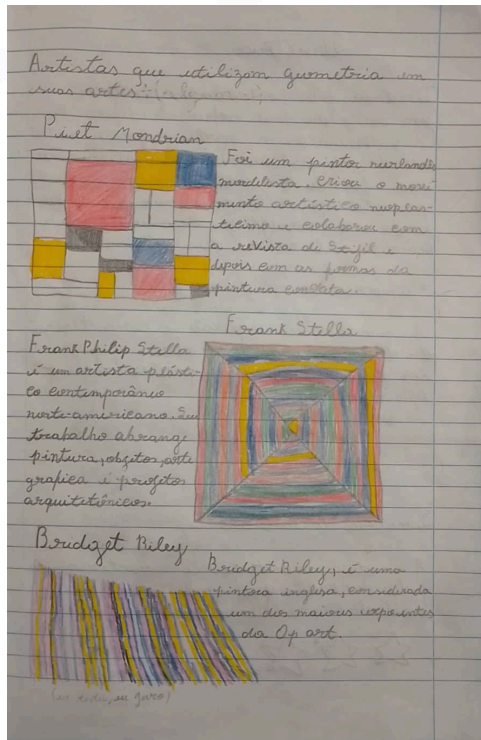 Artistas que utilizam geometria em
suas artes:
Piet Mondrian
Foi um pintor neerlandês
modernista. Criou o movi-
mento artístico neoplas-
ticismo e colaborou com
a revista de Stijil e
depois com as formas da
pintura
Frank Stella
Frank Philip Stella
é um artista plásti-
co contemporâneo
norte-americano. Seu
trabalho abrange
pintura, objetos, arte
grafica e projetos
arquitetônicos.
Bridget Riley
Bridget Riley, é uma
pintora inglesa, considerada
um dos maiores expoentes
da Op art.
(eu tentei, eu juro)